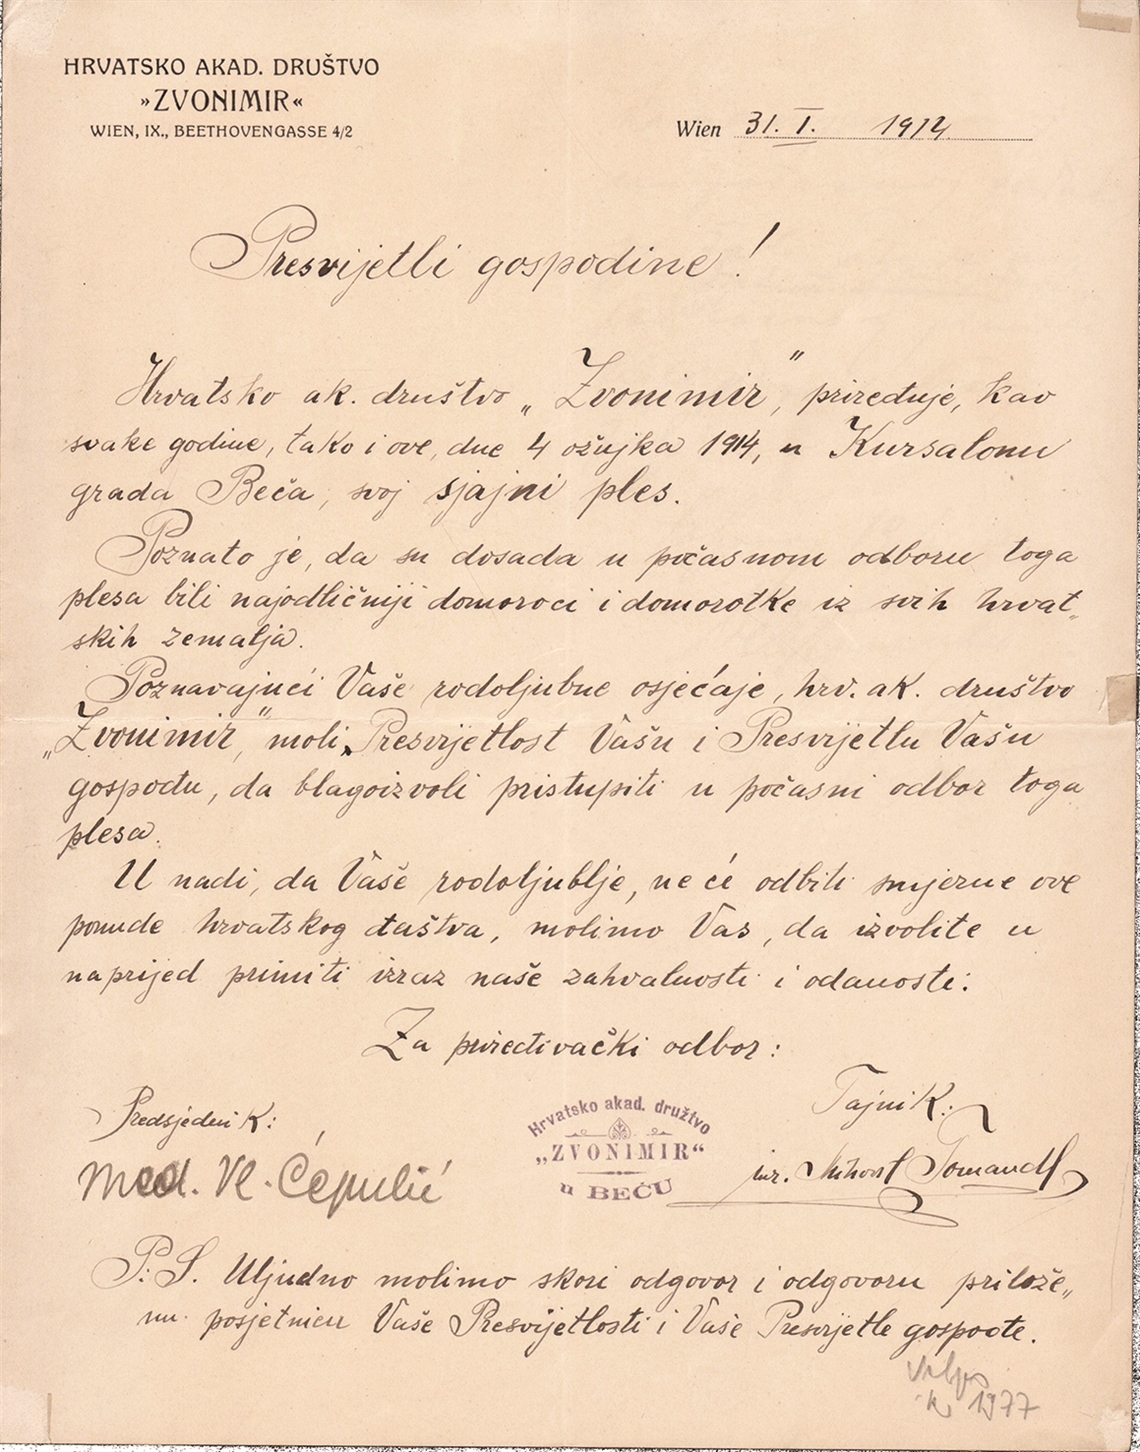 HRVATSKO AKAD. DRUŠTVO
»ZVONIMIR«
WIEN, IX., BEETHOVENGASSE 4/2
Wien 31. I. 1914
Presvijetli gospodine!
Hrvatsko ak. društvo „Zvonimir", priređuje, kao
svake godine, tako i ove, dne 4 ožujka 1914, u Kursalonu
grada Beča, svoj sjajni ples.
Poznato je, da su dosada u počasnom odboru toga
plesa bili najodličniji domoroci i domorotke iz svih hrvat„
skih zemalja.
Poznavajući Vaše rodoljubne osjećaje, hrv. ak. društvo
„Zvonimir", moli Presvijetlost Vašu i Presvijetlu Vašu
gospođu, da blagoizvoli pristupiti u počasni odbor toga
plesa.
U nadi, da Vaše rodoljublje, ne će odbiti smjerne ove
ponude hrvatskog đaštva, molimo Vas, da izvolite u
naprijed primiti izraz naše zahvalnosti i odanosti:
Za priređivački odbor:
Predsjednik:
Tajnik:
Med. Vl. Ćepulić
Hrvatsko akad. družtvo
„ZVONIMIR“
u BEČU
inž. Tomandl
P. S. Uljudno molimo skori odgovor i odgovoru prilože„
nu posjetnicu Vaše Presvijetlosti i Vaše Presvijetle gospođe.
1977